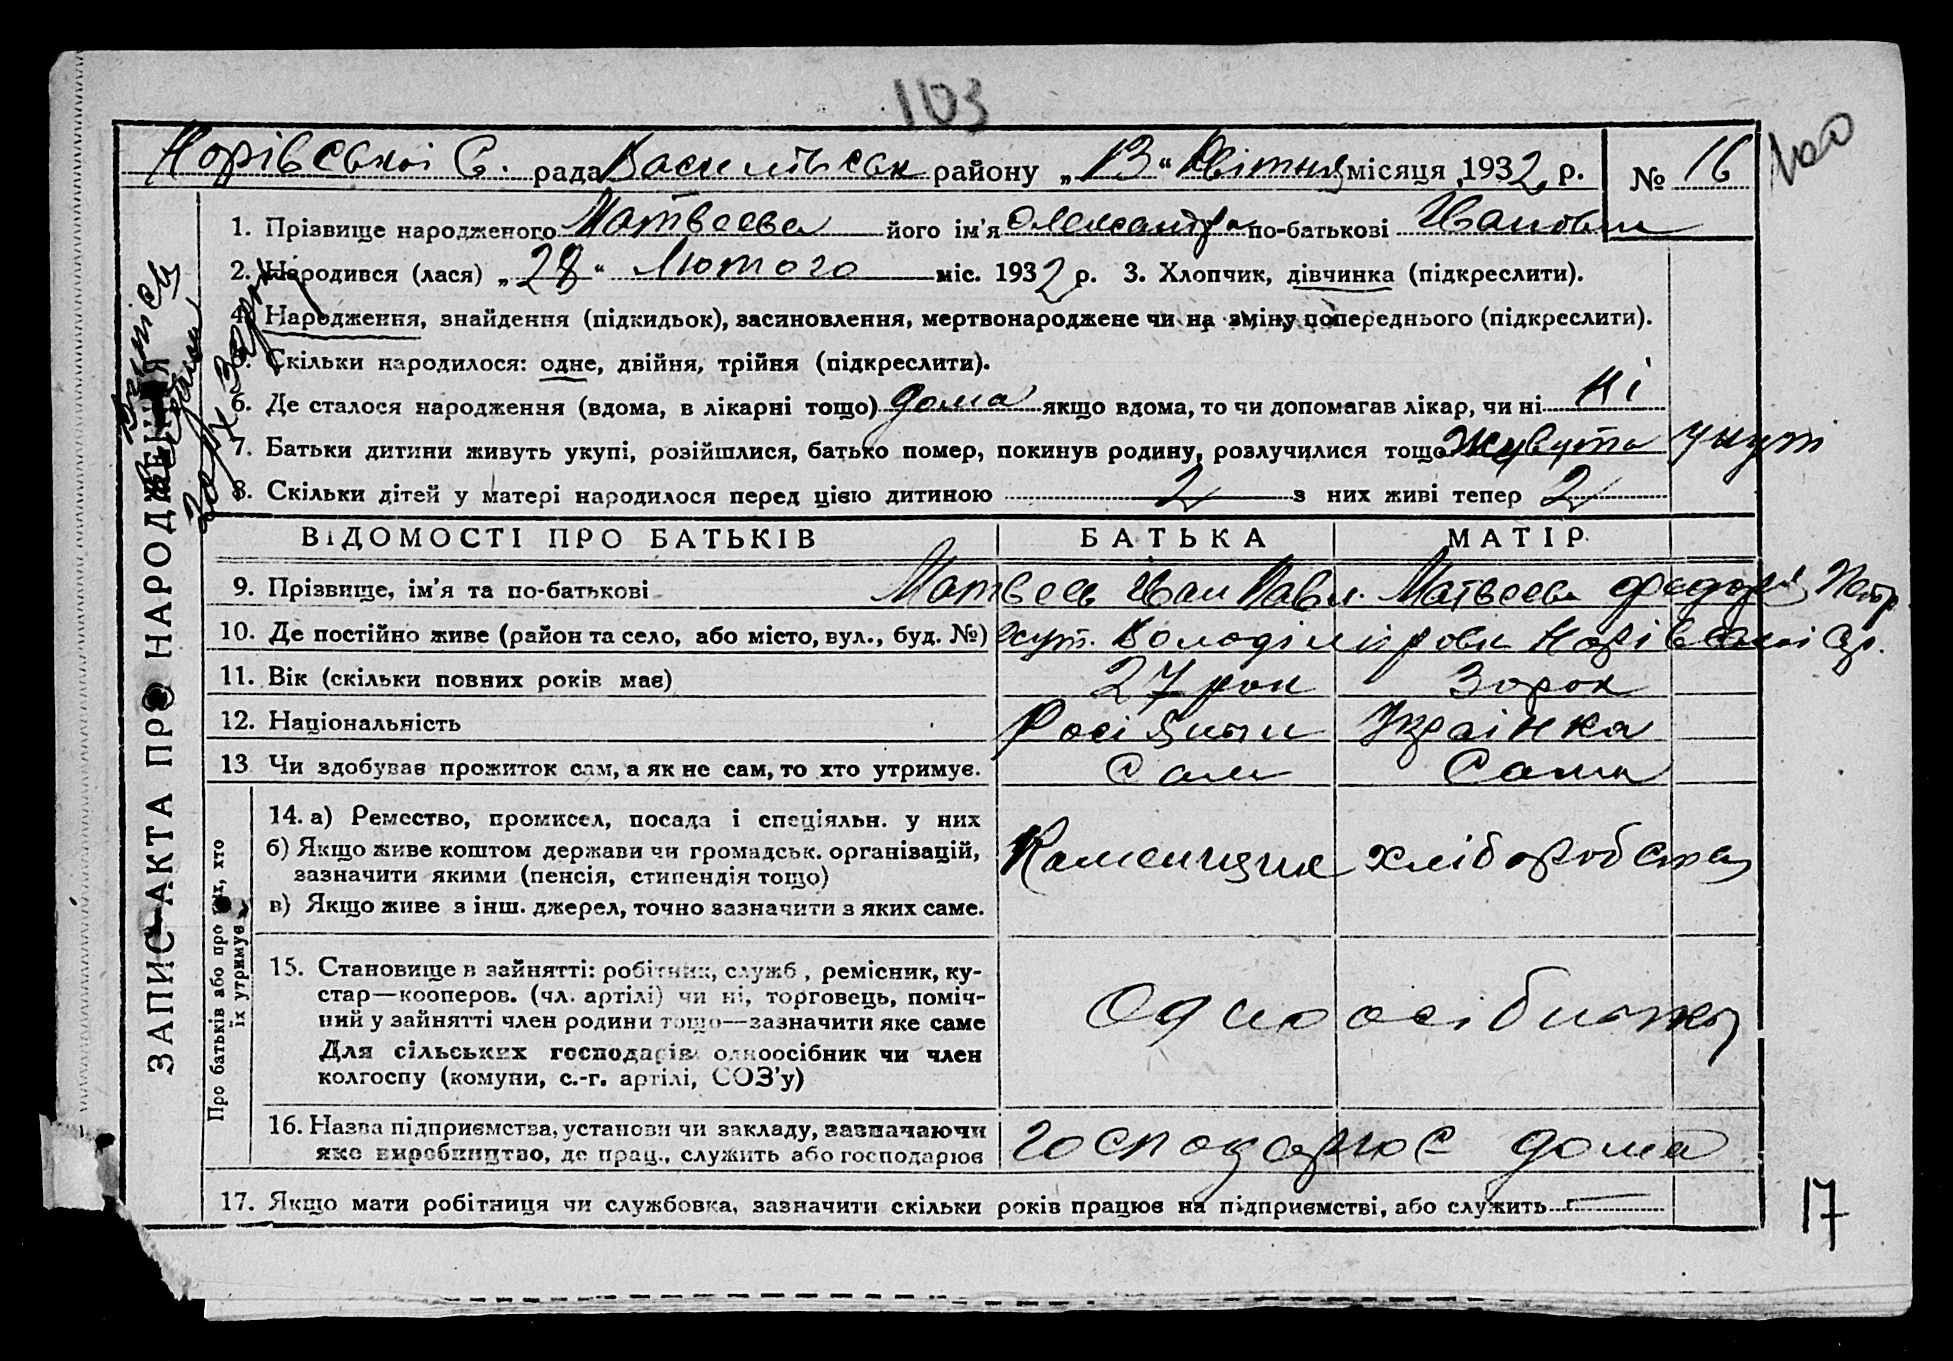 103
Норівської С. рада Васильківськ району „13“ Квітня місяця 1932 р. № 16
1. Прізвище народженого Матвеева його ім'я Олександра по-батькові Ивановна
2. Народився (лася) „28“ Лютого міс. 1932 р. 3. Хлопчик, дівчинка (підкреслити).
4. Народження, знайдення (підкидьок), засиновлення, мертвонароджене чи на зміну попереднього (підкреслити).
Скільки народилося: одне, двійня, трійня (підкреслити).
6. Де сталося народження (вдома, в лікарні тощо) дома якщо вдома, то чи допомагав лікар, чи ні ні
7. Батьки дитини живуть укупі, розійшлися, батько помер, покинув родину, розлучилися тощо Живуть укупі
8. Скільки дітей у матері народилося перед цією дитиною 2 з них живі тепер 2
ЗАПИС АКТА ПРО НАРОДЖЕННЯ
ВІДОМОСТІ ПРО БАТЬКІВ БАТЬКА МАТІР
9. Прізвище, ім'я та по-батькові Матвеев Иван Павл. Матвеева Федора Петр
10. Де постійно живе (район та село, або місто, вул., буд. №) Норівської
11. Вік (скільки повних років має) 27 рок 30 рок
12. Національність Росіянин Українка
13 Чи здобував прожиток сам, а як не сам, то хто утримує. Сам Сама
Про батьків або про тих, хто їх утримує
14. а) Ремество, промисел, посада і спеціяльн. у них
б) Якщо живе коштом держави чи громадськ. організацій,
зазначити якими (пенсія, стипендія тощо)
в) Якщо живе з інш. джерел, точно зазначити з яких саме.
Каменщик хліборобство
15. Становище в зайнятті: робітник, служб, ремісник, ку-
стар—кооперов. (чл. артілі) чи ні, торговець, поміч-
ний у зайнятті член родини тощо—зазначити яке саме
Для сільських господарів одноосібник чи член
колгоспу (комуни, с.-г. артілі, СОЗ'у)
Одноосібники
16. Назва підприємства, установи чи закладу, зазначаючи
яке виробництво, де прац., служить або господарює
господарює дома
17. Якщо мати робітниця чи службовка, зазначити скільки років працює на підприємстві, або служить
17